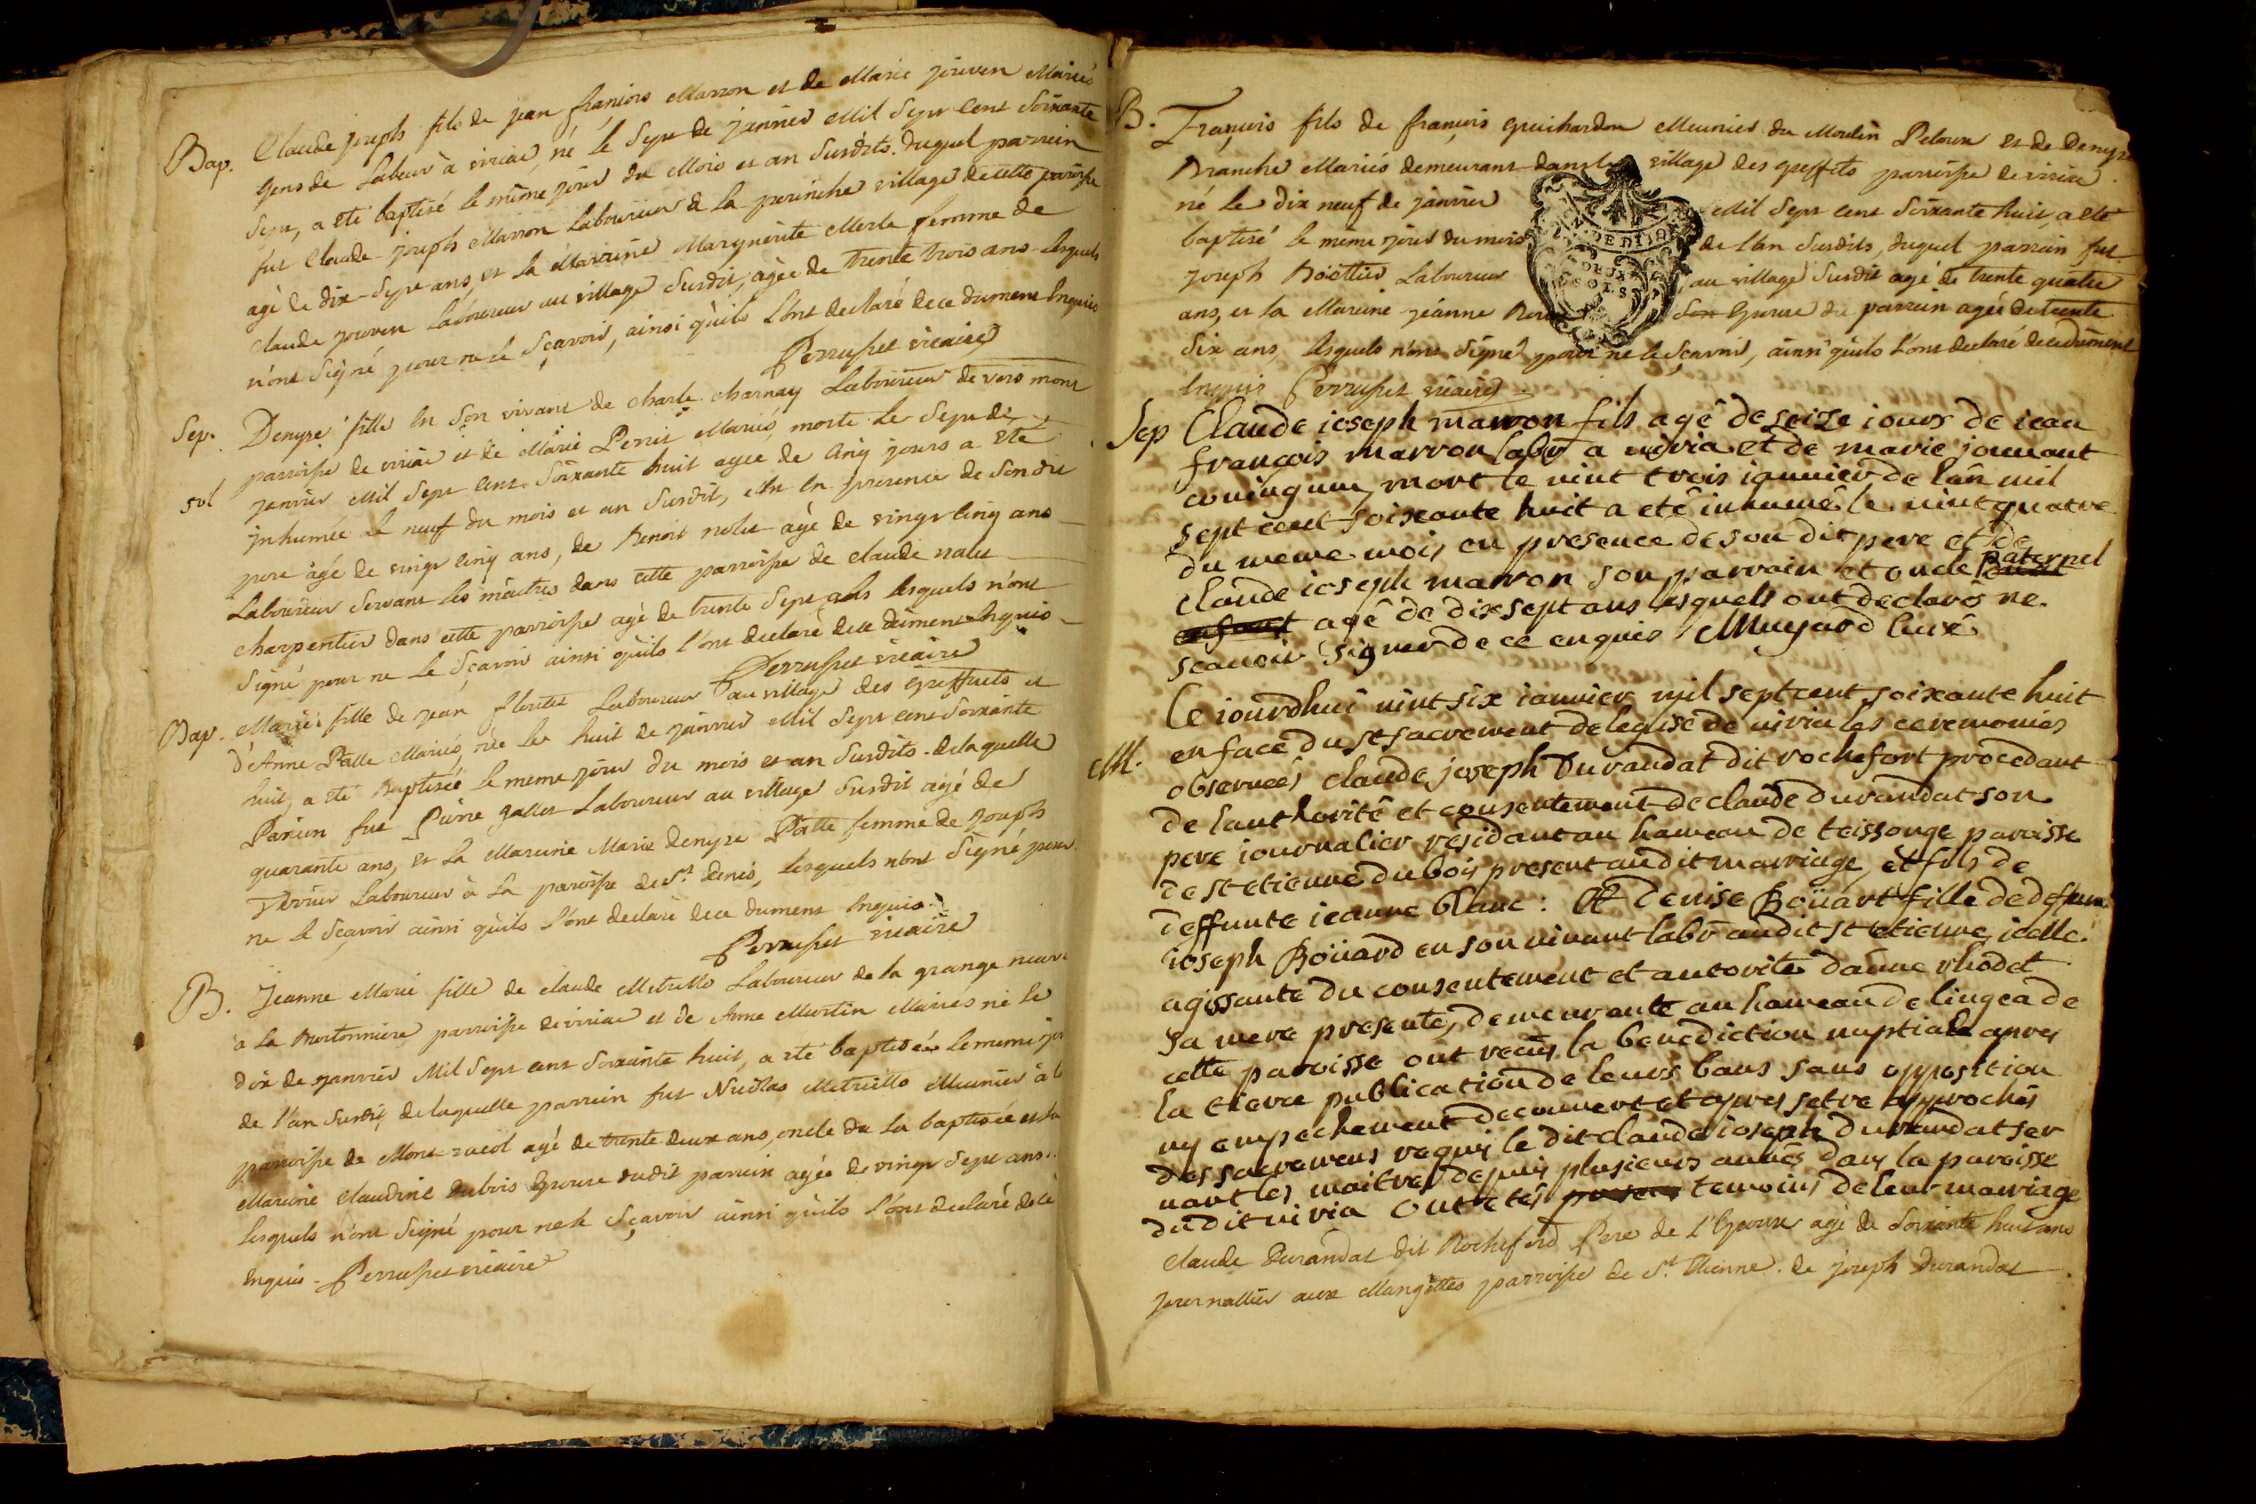 Bap. Claude joseph fils de jean françois Marron et de Marie jouven Mariés
gens de Labeur à viriac, né le sept de janvier Mil sept cent soixante
sept, a eté baptisé le même jour du Mois et an susdits. duquel parrein
fut Claude joseph Marron Laboureur de la perinche village de cette parroisse
agé de dix-sept ans, et la Marreine Marguerite Merle femme de
Claude jouven Laboureur au village susdit, agée de trente trois ans lesquels
n'ont signé pour ne le sçavoir, ainsi qu'ils l'ont declaré de ce dument Enquis
Perruset vicaire
Sep. Denyse fille En son vivant de charle charnay Laboureur de vers mont
parroisse de viriac et de Marie Perrit Mariés, morte le sept de
sol janvier Mil sept cent soixante huit agée de cinq jours a eté
inhumée le neuf du mois et an susdit, En presence de son dit
pere agé de vingt cinq ans, de Benoit nolet agé de vingt cinq ans
Laboureur servant les maîtres dans cette parroisse de claude nalet
charpentier dans cette parroisse agé de trente sept ans lesquels n'ont
signé pour ne le sçavoir ainsi qu'ils l'ont declaré de ce dument Enquis
Perruset vicaire
Bap. Marie fille de jean Laboureur au village des greffets et
d'Anne Patte Mariés, née le huit de janvier Mil sept cent soixante
huit, a eté Baptisée le meme jour du mois et an susdits. de laquelle
Parein fut Pierre gallet Laboureur au village susdit agé de
quarante ans, et la Mareine Marie denyse Patte femme de joseph
Laboureur à la paroisse de St. denis, lesquels n'ont signé pour
ne le sçavoir ainsi qu'ils l'ont declaré de ce dument Enquis.
Perruset vicaire
B. Jeanne Marie fille de claude Laboureur de la grange neuve
à la parroisse de viriac et de Anne Martin Mariés né le
dix de janvier Mil sept cent soixante huit, a eté baptisée le meme jour
de l'an susdit, de laquelle parrein fut Nicolas Meunier à la
parroisse de agé de trente deux ans, oncle de la baptisée et la
Mareine Claudine dubois Epouse dudit parrein agée de vingt sept ans.
lesquels n'ont signé pour ne le sçavoir ainsi qu'ils l'ont declaré de ce
Enquis - Perruset vicaire
B. François fils de françois guichardon Meunier du Moulin Peloux et de denyse
Branche Mariés demeurant dans le village des greffets parroisse de viriac
né le dix neuf de janvier Mil sept cent soixante huit, a eté
baptisé le même jour du mois de l'an susdits, duquel parrain fut
joseph Laboureur au village susdit agé de trente quatre
ans, et la Mareine jeanne son Epouse du parrein agée de trente
six ans, lesquels n'ont signé pour ne le sçavoir, ainsi qu'ils l'ont declaré de ce dument
Enquis Perruset vicaire
Sep Claude ioseph marron fils agé de seize iours de iean
françois marron labr a viria et de marie jouuant
couinquin, mort le uint trois ianuier de l'an mil
sept cent soixante huit a eté inhumé le uint quatre
du meme mois en presence de son dit pere et de
claude ioseph marron son parrain et oncle paternel
enfant agé de dix sept ans lesquels ont declaré ne
scauoir signer de ce enquis Muyard Curé
Ce iourdhui uint six ianuier mil sept cent soixante huit
en face du st sacrement de leglise de uiria les ceremonies
M. obseruees claude joseph Durandat dit rochefort procedant
de lauthorité et consentement de claude durandat son
pere iournalier residant au hameau de teissonge paroisse
de st etienne du bois present audit marriage, et fils de
deffunte ieanne blanc : Et Denise Boüart fille de defunt
ioseph Boüard en son uiuant labr audit st etienne icelle
agissante du consentement et autorité d'anne rhodet
sa mere presente, demeurante au hameau de lingea de
cette paroisse ont recus la benediction nuptiale apres
la tierce publication de leurs bans sans opposition
ny empechement decouuert et apres setre approchés
des sacremens requis le dit claude ioseph durandat ser
uant les maitres depuis plusieurs années dans la paroisse
dudit uiria Ont etés presens temoins de leur marriage
Claude Durandat dit Rocheford Pere de l'Epoux agé de soixante huit ans
journallier aux Mangettes parroisse de St. Etienne. de joseph Durandat